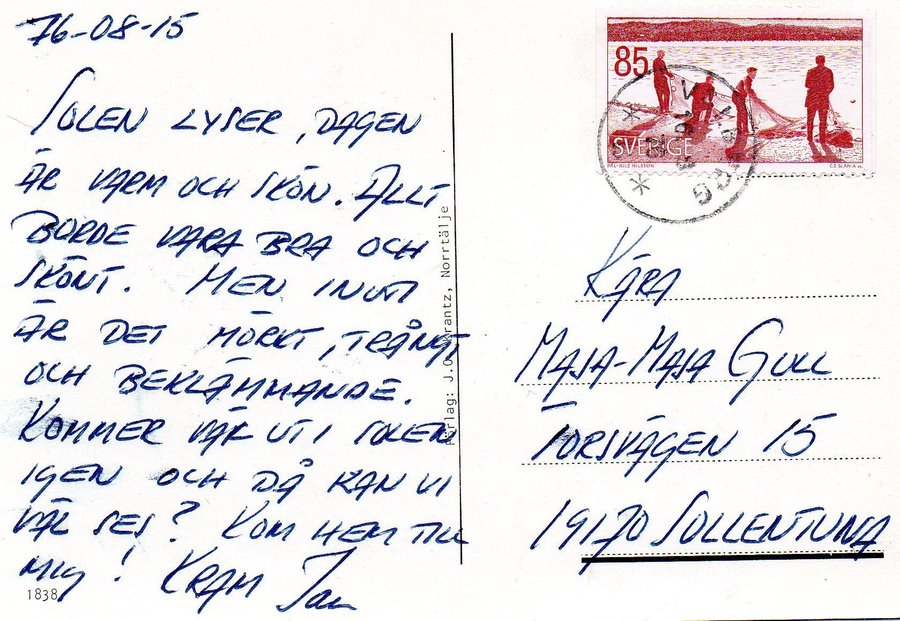 76-08-15
SOLEN LYSER, DAGEN
ÄR VARM OCH SKÖN. ALLT
BORDE VARA BRA OCH
SKÖNT. MEN INUTI
ÄR DET MÖRKT, TRÅNGT
OCH BEKLÄMMANDE.
KOMMER VÄL UT I SOLEN
IGEN OCH DÅ KAN VI
VÄL SES? KOM HEM TILL
MIG! KRAM Jan
1838
Förlag: J.O. Krantz, Norrtälje
85
SVERIGE
PÅL-NILS NILSSON
CZ SLANIA SC
VAXHOLM
KÄRA
MAJA-MAJA GULL
TORSVÄGEN 15
19170 SOLLENTUNA